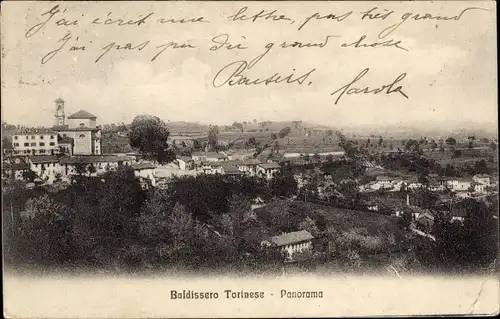 J'ai écrit une lette, pas très grand
J'ai pas pu dir grand chose
Bausis, Carola
Baldissero Torinese - Panorama